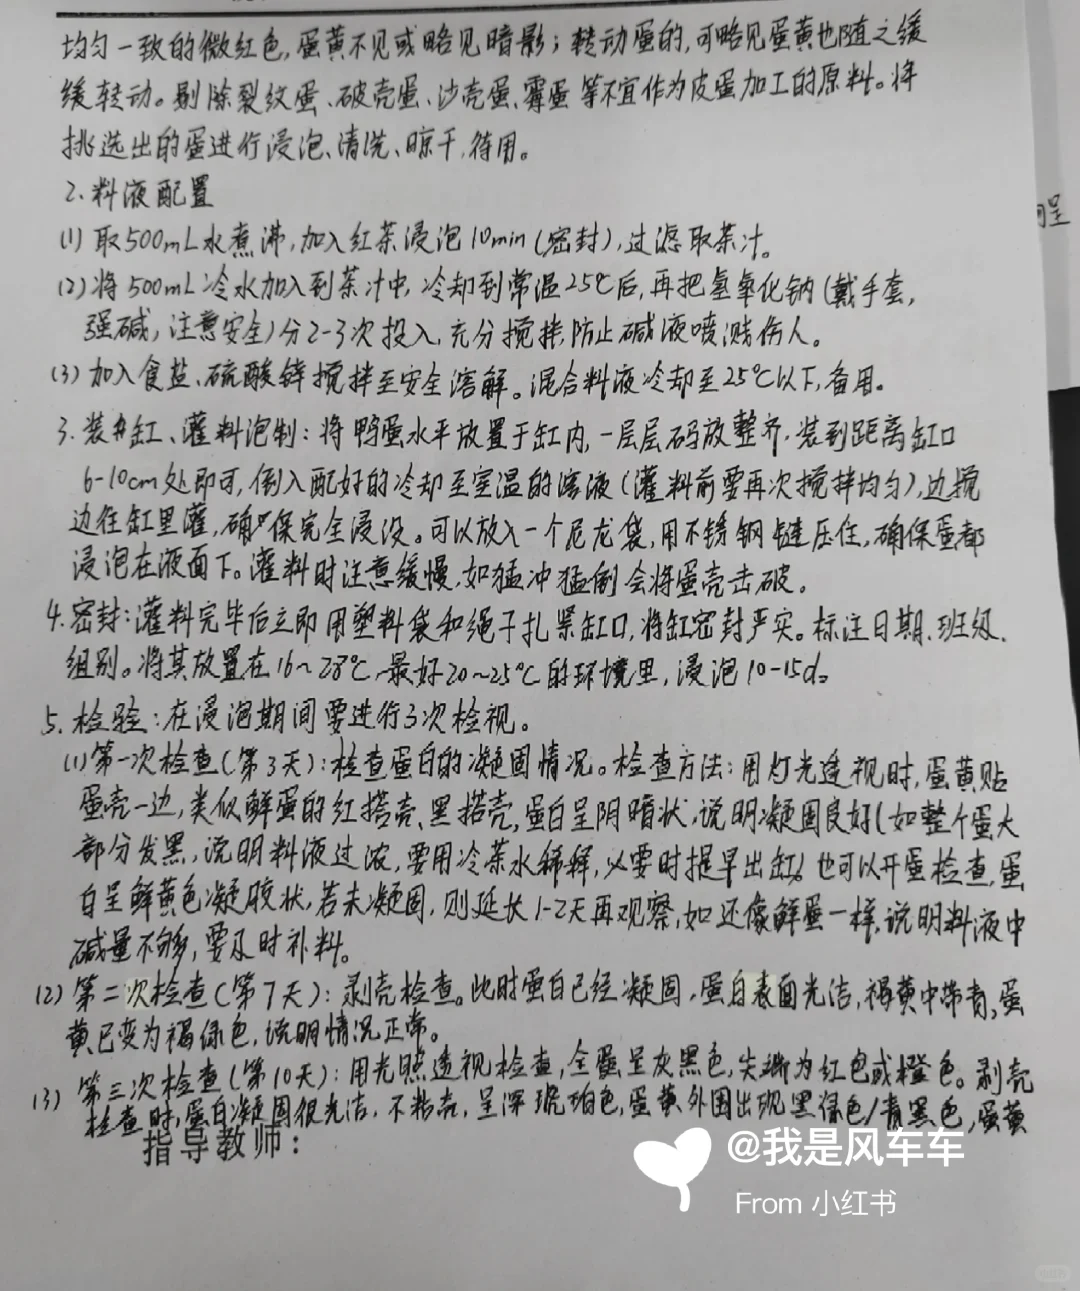 均匀一致的微红色,蛋黄不见或略见暗影；转动蛋的,可略见蛋黄也随之缓
缓转动。剔除裂纹蛋、破壳蛋、沙壳蛋、霉蛋等不宜作为皮蛋加工的原料。将
挑选出的蛋进行浸泡、清洗、晾干,待用。
2.料液配置
(1)取500mL水煮沸,加入红茶浸泡10min(密封),过滤取茶汁。
(2)将500mL冷水加入到茶汁中,冷却到常温25℃后,再把氢氧化钠(戴手套,
强碱,注意安全)分2-3次投入,充分搅拌,防止碱液喷溅伤人。
(3)加入食盐、硫酸锌搅拌至安全溶解。混合料液冷却至25℃以下,备用。
3.装缸、灌料泡制:将鸭蛋水平放置于缸内,一层层码放整齐,装到距离缸口
6-10cm处即可,倒入配好的冷却至室温的溶液(灌料前要再次搅拌均匀),边搅
边往缸里灌,确保完全浸没。可以放入一个尼龙袋,用不锈钢链压住,确保蛋都
浸泡在液面下。灌料时注意缓慢,如猛冲猛倒会将蛋壳击破。
4.密封:灌料完毕后立即用塑料袋和绳子扎紧缸口,将缸密封严实。标注日期、班级、
组别。将其放置在16~28℃,最好20~25℃的环境里,浸泡10-15d。
5.检验:在浸泡期间要进行3次检视。
(1)第一次检查(第3天):检查蛋白的凝固情况。检查方法:用灯光透视时,蛋黄贴
蛋壳一边,类似鲜蛋的红搭壳、黑搭壳,蛋白呈阴暗状,说明凝固良好(如整个蛋大
部分发黑,说明料液过浓,要用冷茶水稀释,必要时提早出缸)也可以开蛋检查,蛋
白呈鲜黄色凝胶状,若未凝固,则延长1-2天再观察,如还像鲜蛋一样,说明料液中
碱量不够,要及时补料。
(2)第二次检查(第7天):剥壳检查。此时蛋白已经凝固,蛋白表面光洁,褐黄中带青,蛋
黄已变为褐绿色,说明情况正常。
(3)第三次检查(第10天):用光照透视检查,全蛋呈灰黑色,尖端为红色或橙色。剥壳
检查时,蛋白凝固很光洁,不粘壳,呈深琥珀色,蛋黄外围出现黑绿色/青黑色,蛋黄
指导教师:
@我是风车车
From 小红书